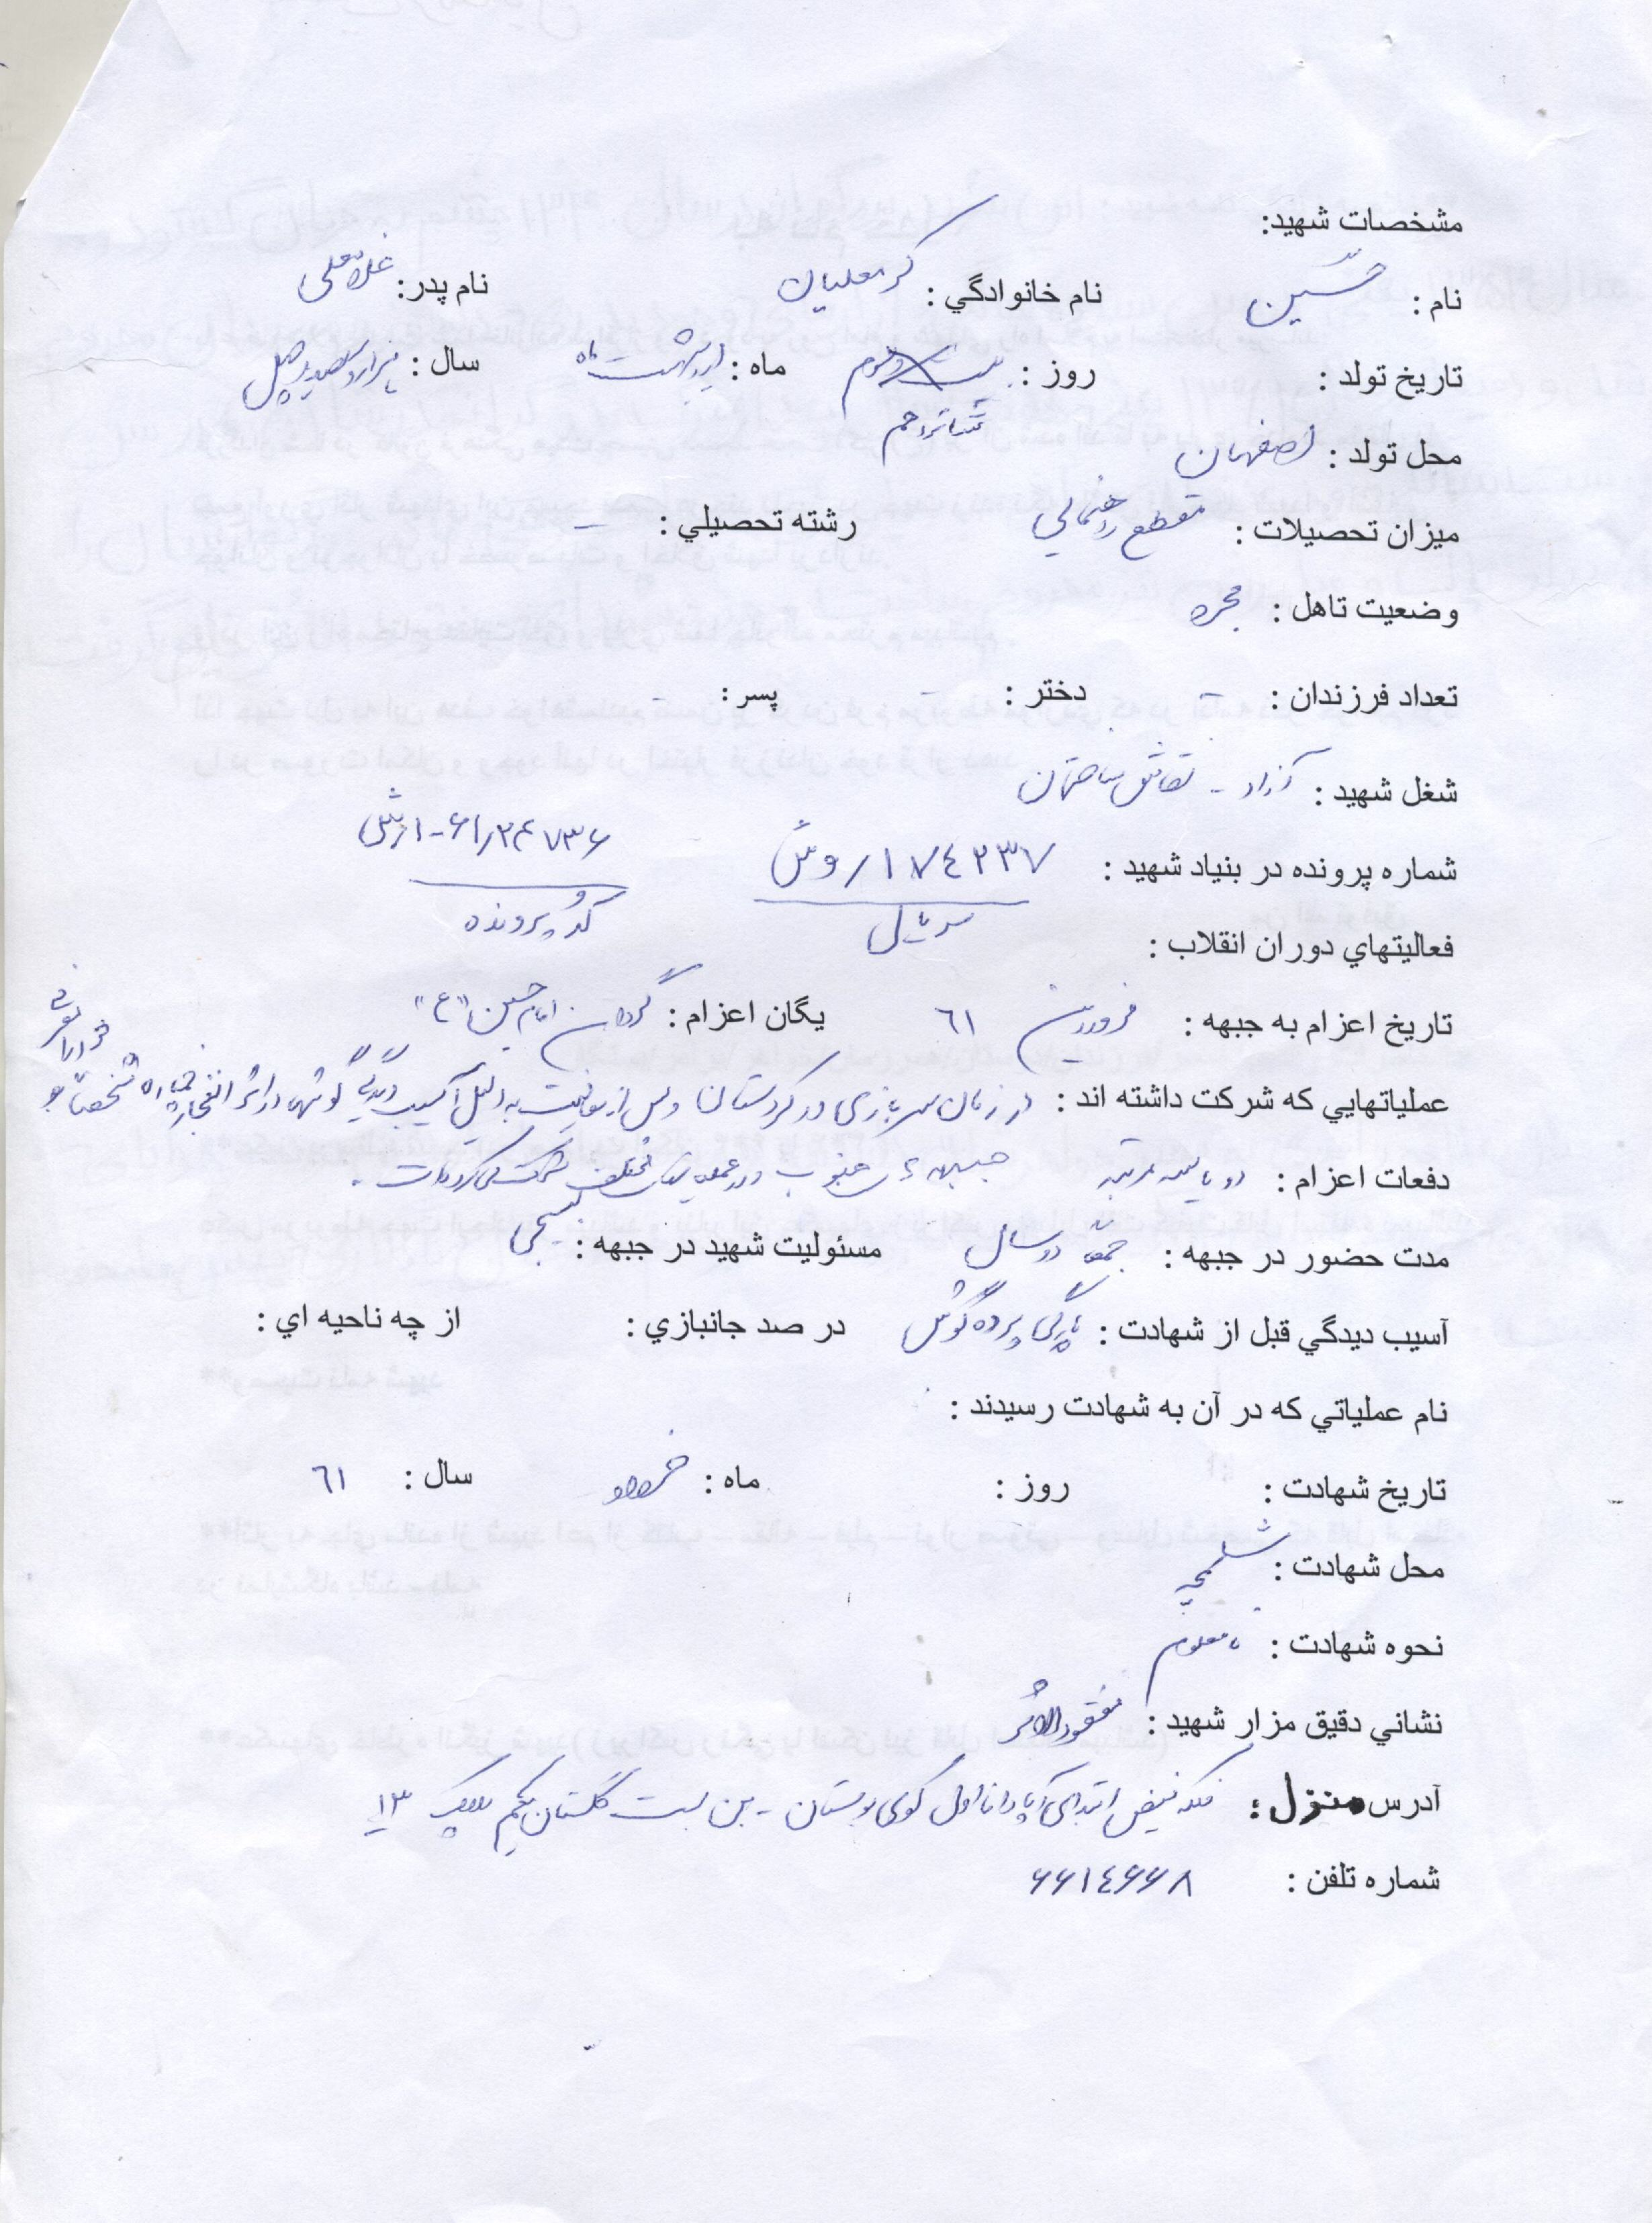 مشخصات شهيد:
نام : حسین نام خانوادگي : کرمعلیان نام پدر: غلامعلی
تاريخ تولد : روز : بیست و سوم ماه : اردیبهشت ماه سال : هزار و سیصد و چهل
شانزدهم
محل تولد : اصفهان
ميزان تحصيلات : مقطع راهنمایی رشته تحصيلي : –
وضعيت تاهل : مجرد
تعداد فرزندان : – دختر : – پسر : –
شغل شهيد : آزاد - نقاش ساختمان
شماره پرونده در بنياد شهيد : ۱۷٤۲۳۷ / وش ۶۱٫۲۴۷۳۶-ارش
سریال کد پرونده
فعاليتهاي دوران انقلاب :
تاريخ اعزام به جبهه : فروردین ٦١ يگان اعزام : گردان امام حسین "ع"
عملياتهايي که شرکت داشته اند : در زمان سربازی در کردستان و پس از معافیت به دلیل آسیب دیدگی گوشها در اثر انفجار خمپاره شخصاً به
دفعات اعزام : دو یا سه مرتبه جبهه ی جنوب و در عملیات مختلف شرکت کرده است .
مدت حضور در جبهه : جمعاً دو سال مسئوليت شهيد در جبهه : بسیجی
آسيب ديدگي قبل از شهادت : پارگی پرده گوش در صد جانبازي : از چه ناحيه اي :
نام عملياتي که در آن به شهادت رسيدند :
تاريخ شهادت : روز : ماه : خرداد سال : ٦١
محل شهادت : شلمچه
نحوه شهادت : نامعلوم
نشاني دقيق مزار شهيد : مفقودالاثر
آدرس منزل : فلکه فیض ابتدای آپادانا اول کوی بوستان - بن بست گلستان یکم پلاک ۱۳
شماره تلفن : ۶۶۱٤۶۶۸